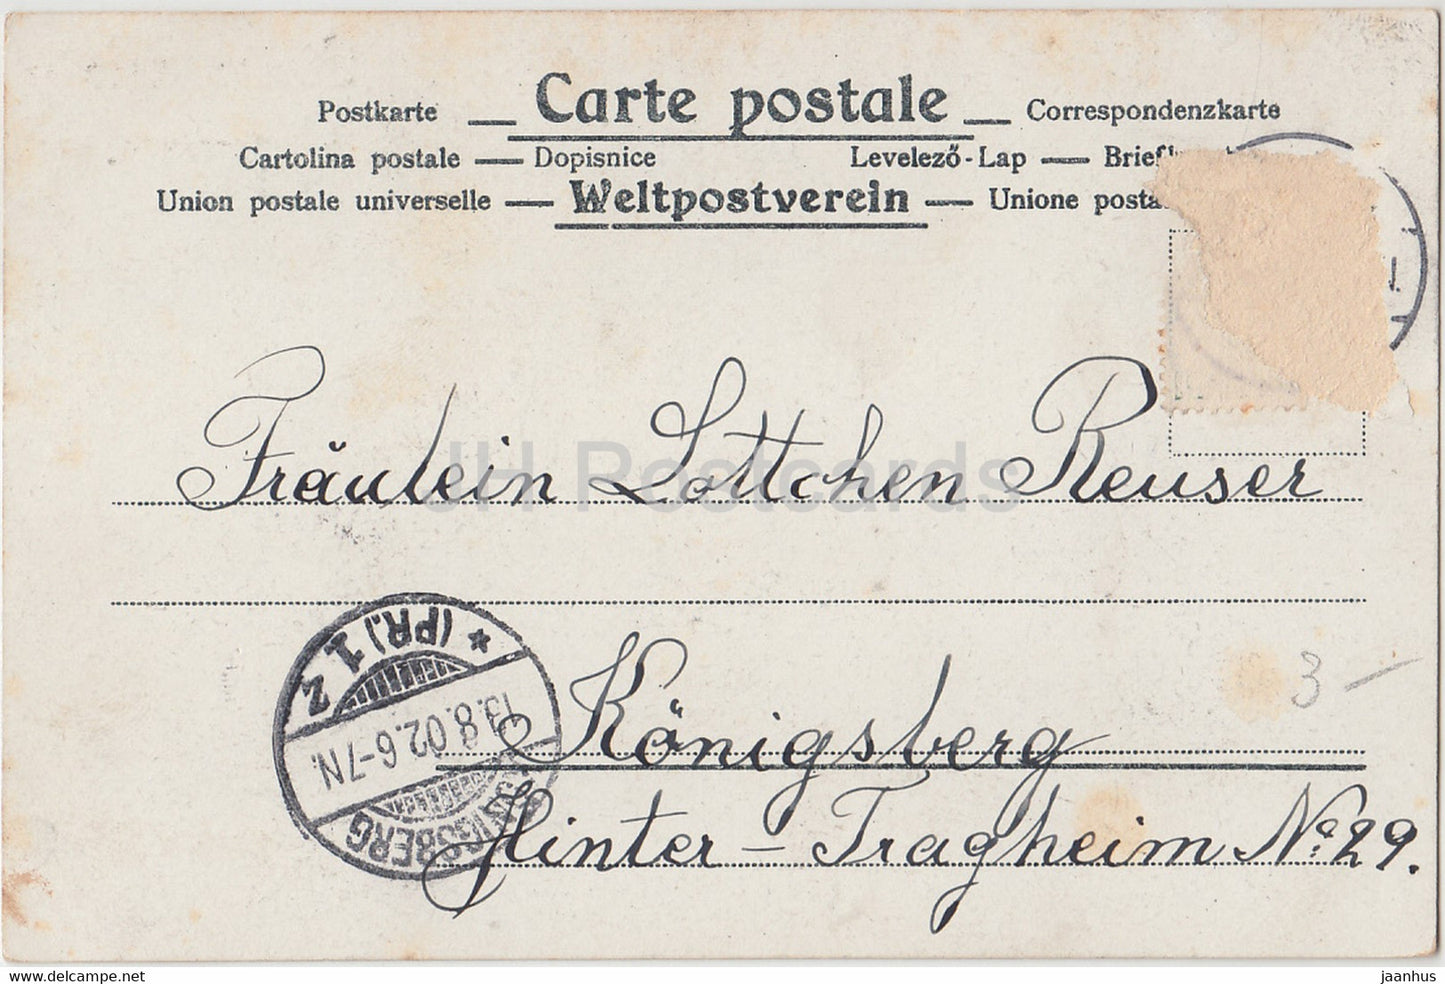 Postkarte — Carte postale — Correspondenzkarte
Cartolina postale — Dopisnice Levelező-Lap —
Union postale universelle — Weltpostverein — Unione
Fräulein Lottchen Reuser
JH Postcards
* (PR.) 1 Z
13.8.02.6-7N.
KÖNIGSBERG
3 —
Königsberg
Hinter-Tragheim No 29.
www.delcampe.net
jaanhus